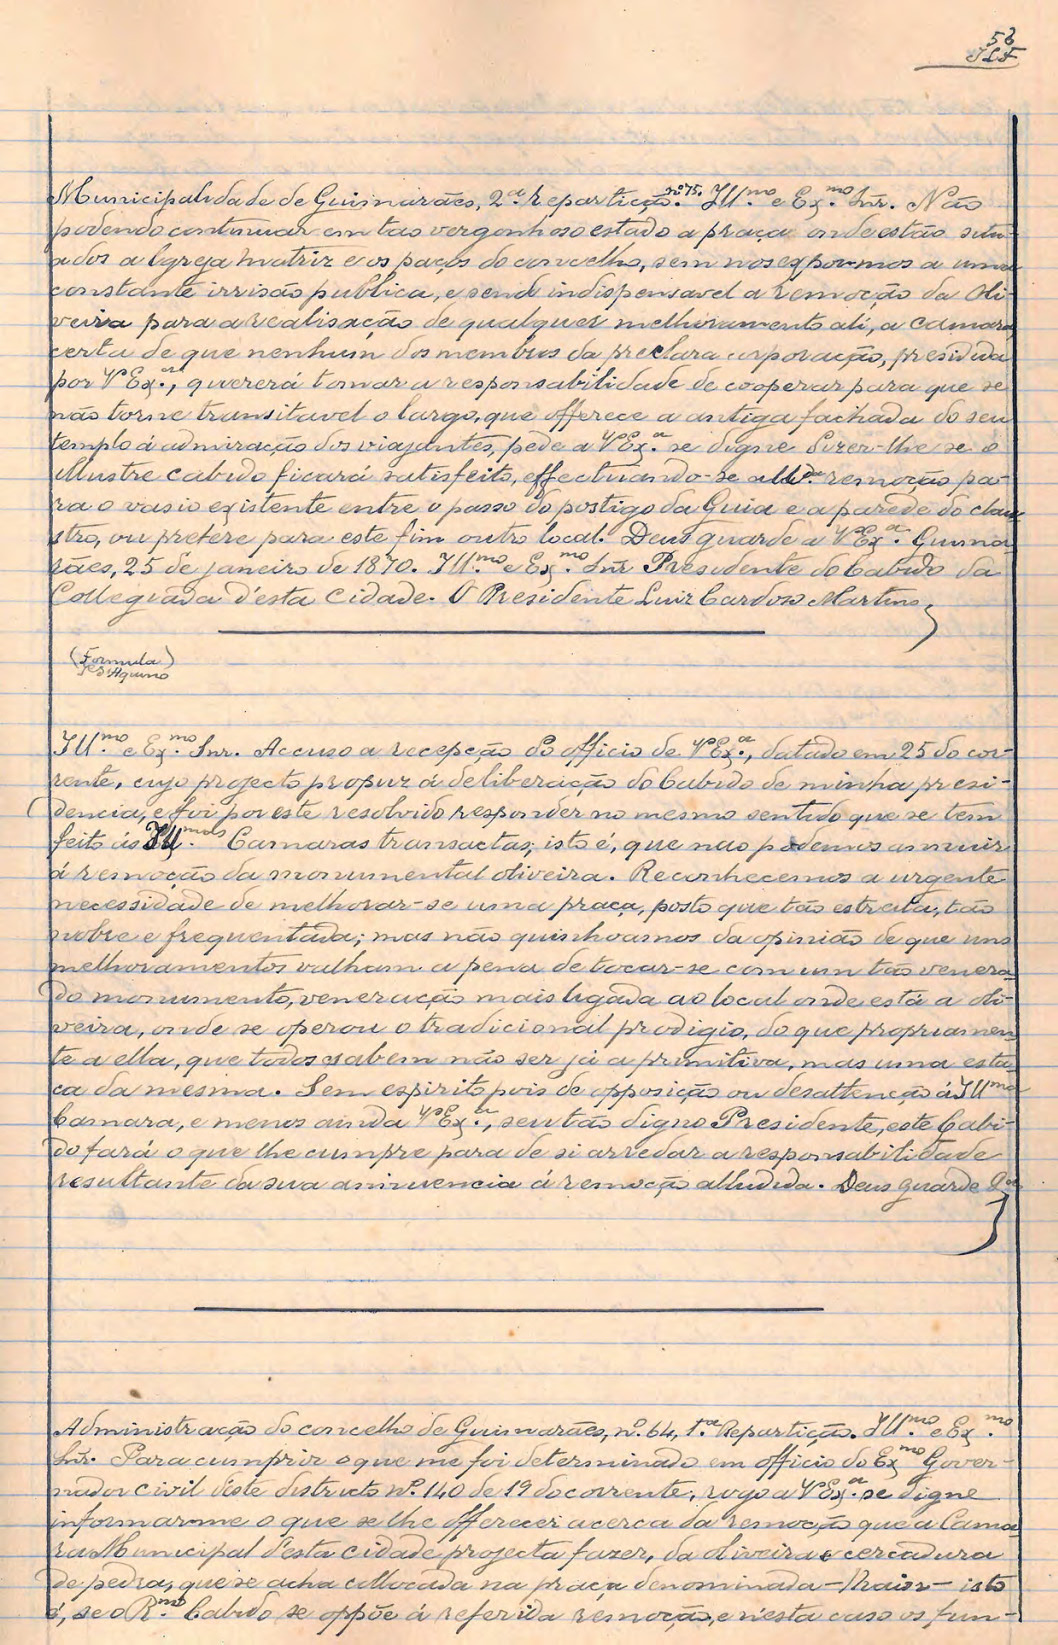 53
Municipalidade de Guimarães, 2.ª repartição nº 75. Ill.mo e Ex.mo Snr. Não
podendo continuar em tão vergonhoso estado a praça onde estão situ-
ados a Igreja matriz e os paços do concelho, sem nos expormos a uma
constante irrisão publica, e sendo indispensavel a remoção da Oli-
veira para a realisação de qualquer melhoramento ali, a camara,
certa de que nenhum dos membros da preclara corporação, presidida
por V.Ex.ª, quererá tomar a responsabilidade de cooperar para que se
não torne transitavel o largo, que offerece a antiga fachada do seu
templo á admiração dos viajantes, pede a V.Ex.ª se digne dizer-lhe se o
illustre cabido ficará satisfeito, effectuando-se a remoção pa-
ra o vasio existente entre o passo do postigo da Guia e a parede do claus
stro, ou prefere para este fim outro local. Deus guarde a V.Ex.ª Guima
rães, 25 de janeiro de 1870. Ill.mo e Ex.mo Snr Presidente do Cabido da
Collegiada d'esta Cidade. O Presidente Luiz Cardoso Martins
(Formula)
Aquino
Ill.mo e Ex.mo Snr. Accuso a recepção do officio de V.Ex.ª, datado em 25 do cor-
rente, cujo projecto propuz á deliberação do Cabido de minha presi-
dencia, e foi por este resolvido responder no mesmo sentido que se tem
feito ás Ill.mas Camaras transactas; isto é, que nao podemos annuir
á remoção da monumental oliveira. Reconhecemos a urgente
necessidade de melhorar-se uma praça, posto que tão estreita, tão
nobre e frequentada; mas não quinhoamos da opinião de que uns
melhoramentos valham a pena de tocar-se com um tão venera-
do monumento, veneração mais ligada ao local onde está a oli-
veira, onde se operou o tradicional prodigio, do que propriamen-
te a ella, que todos sabem não ser já a primitiva, mas uma esta-
ca da mesma. Sem espirito pois de opposição ou desattenção á Ill.ma
Camara, e menos ainda V.Ex.ª, seu tão digno Presidente, este Cabi-
do fará o que lhe cumpre para de si arredar a responsabilidade
resultante da sua annuencia á remoção alludida. Deus guarde
Administração do concelho de Guimarães, nº. 64, 1.ª Repartição. Ill.mo e Ex.mo
Snr. Para cumprir o que me foi determinado em officio do Exmo Gover-
nador civil d'este districto nº. 140 de 19 do corrente, rogo a V.Ex.ª se digne
informar-me o que se lhe offerecer acerca da remoção que a Cama
ra Municipal d'esta cidade projecta fazer, da oliveira e cercadura
de pedra, que se acha collocada na praça denominada - Maior - isto
é, se o R.mo Cabido se oppõe á referida remoção, e n'esta caso os fun-